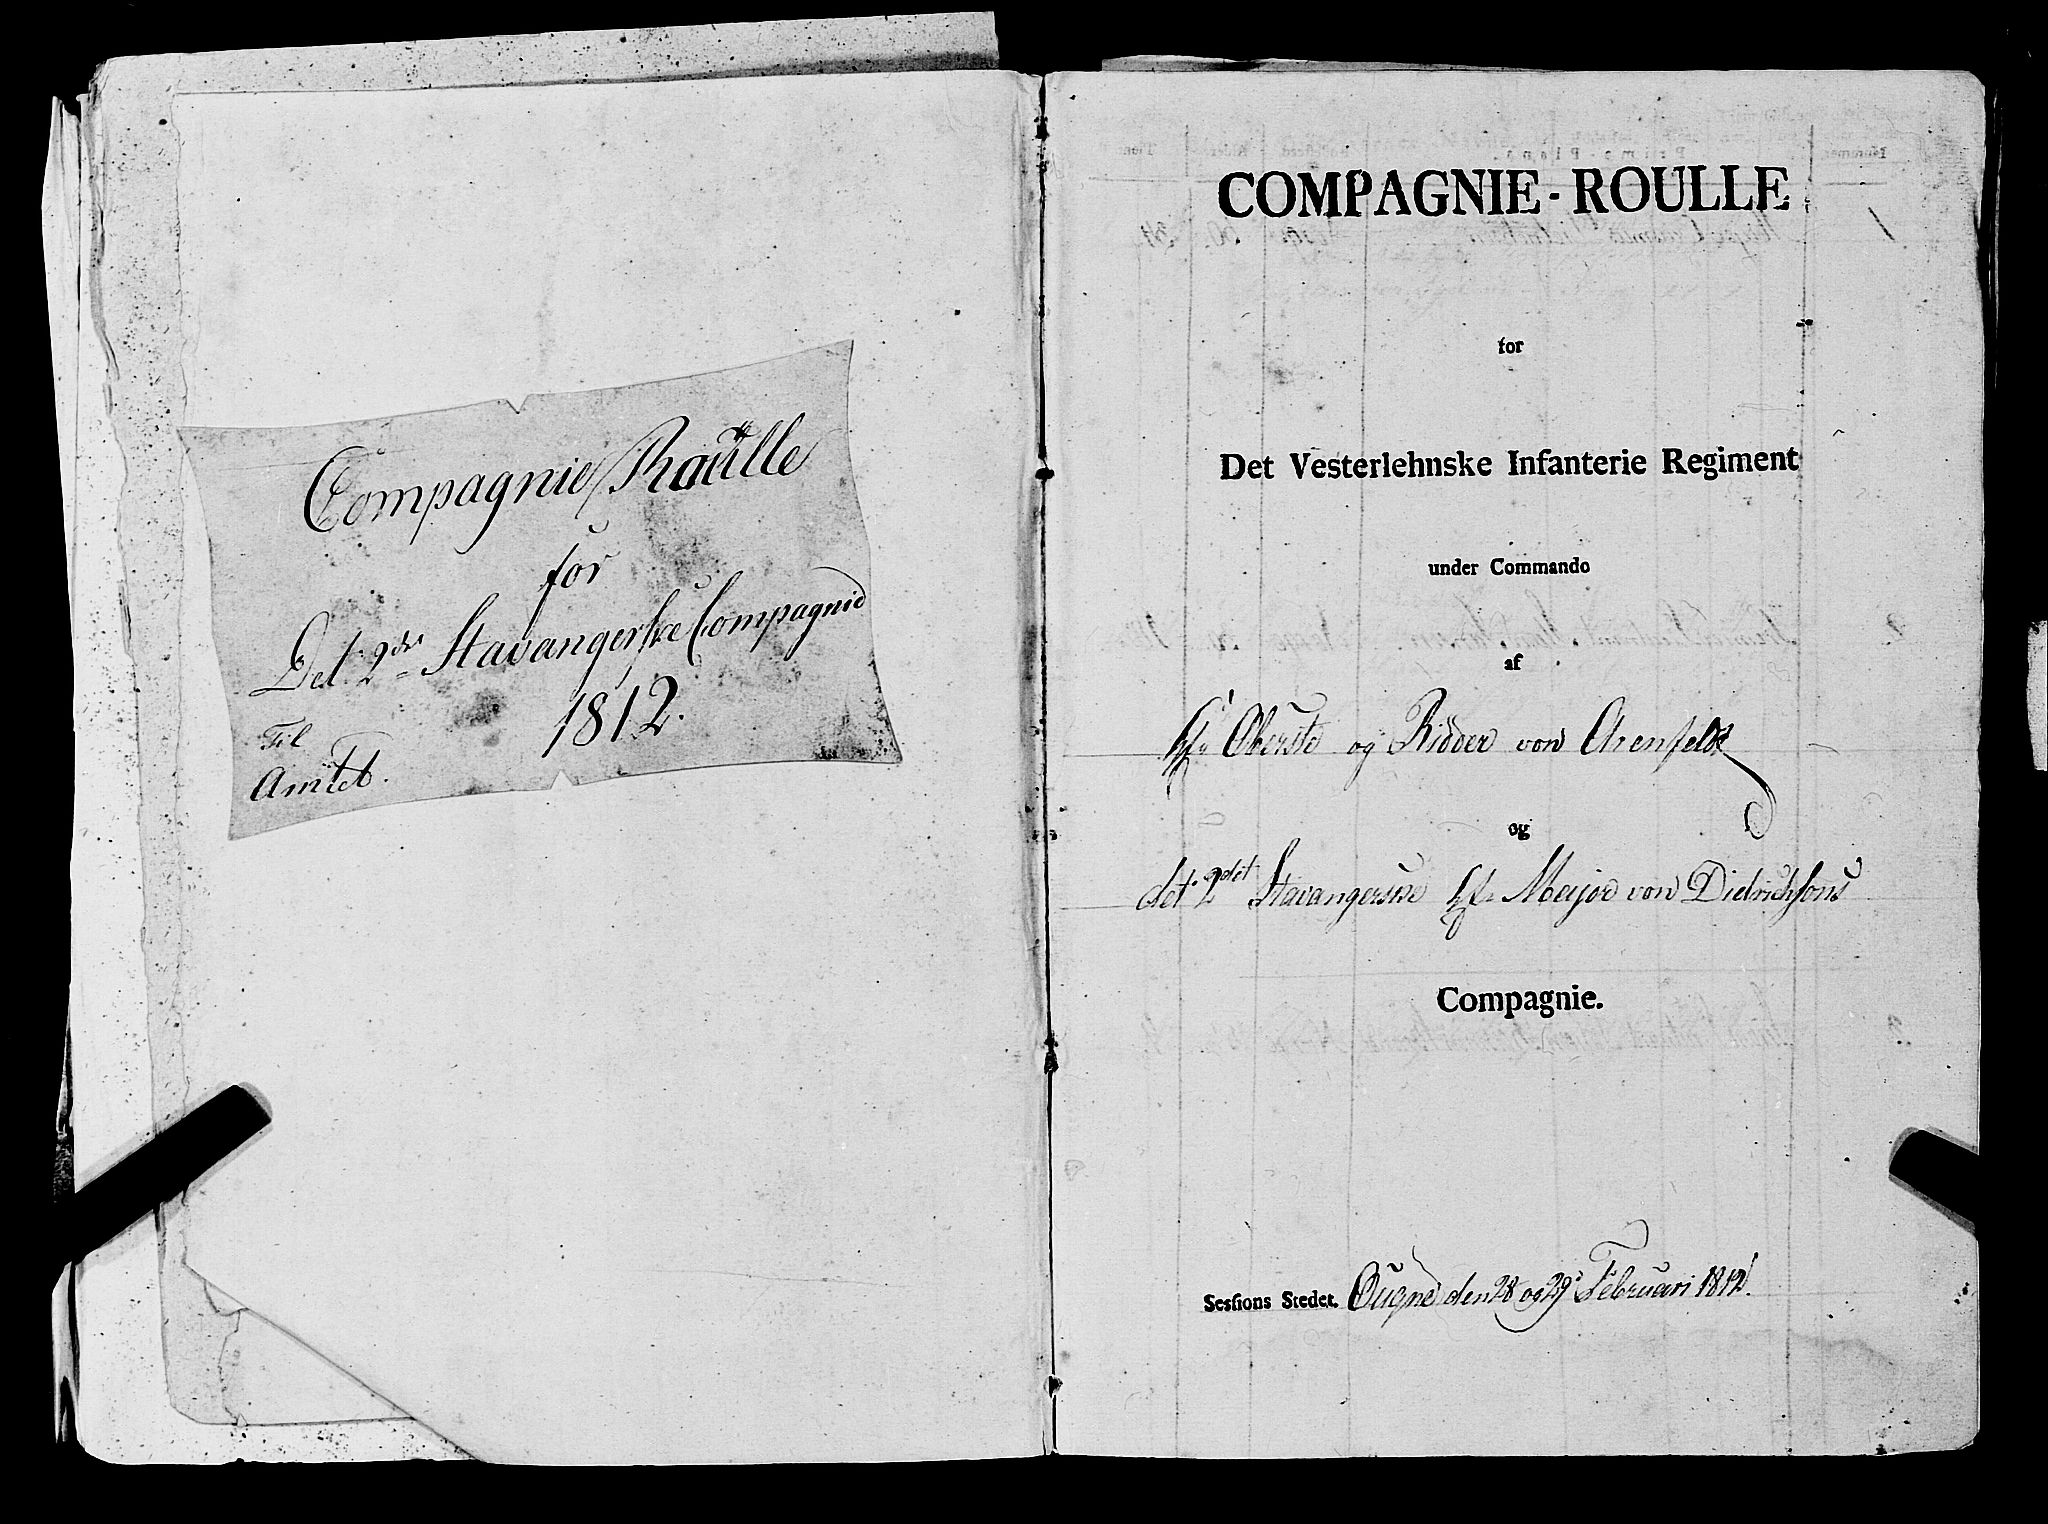 Compagnie Roulle
for
Det 2det Stavangerske Compagnie
1812.
Til
Amtet.
COMPAGNIE-ROULLE
for
Det Vesterlehnske Infanterie Regiment
under Commando
af
Hr Oberste og Ridder von Arenfeldt
og
det 2det Stavangerske Hr Major von Didrichsons
Compagnie.
Sessions Stedet. Ougne den 28 og 29 Februari 1812.